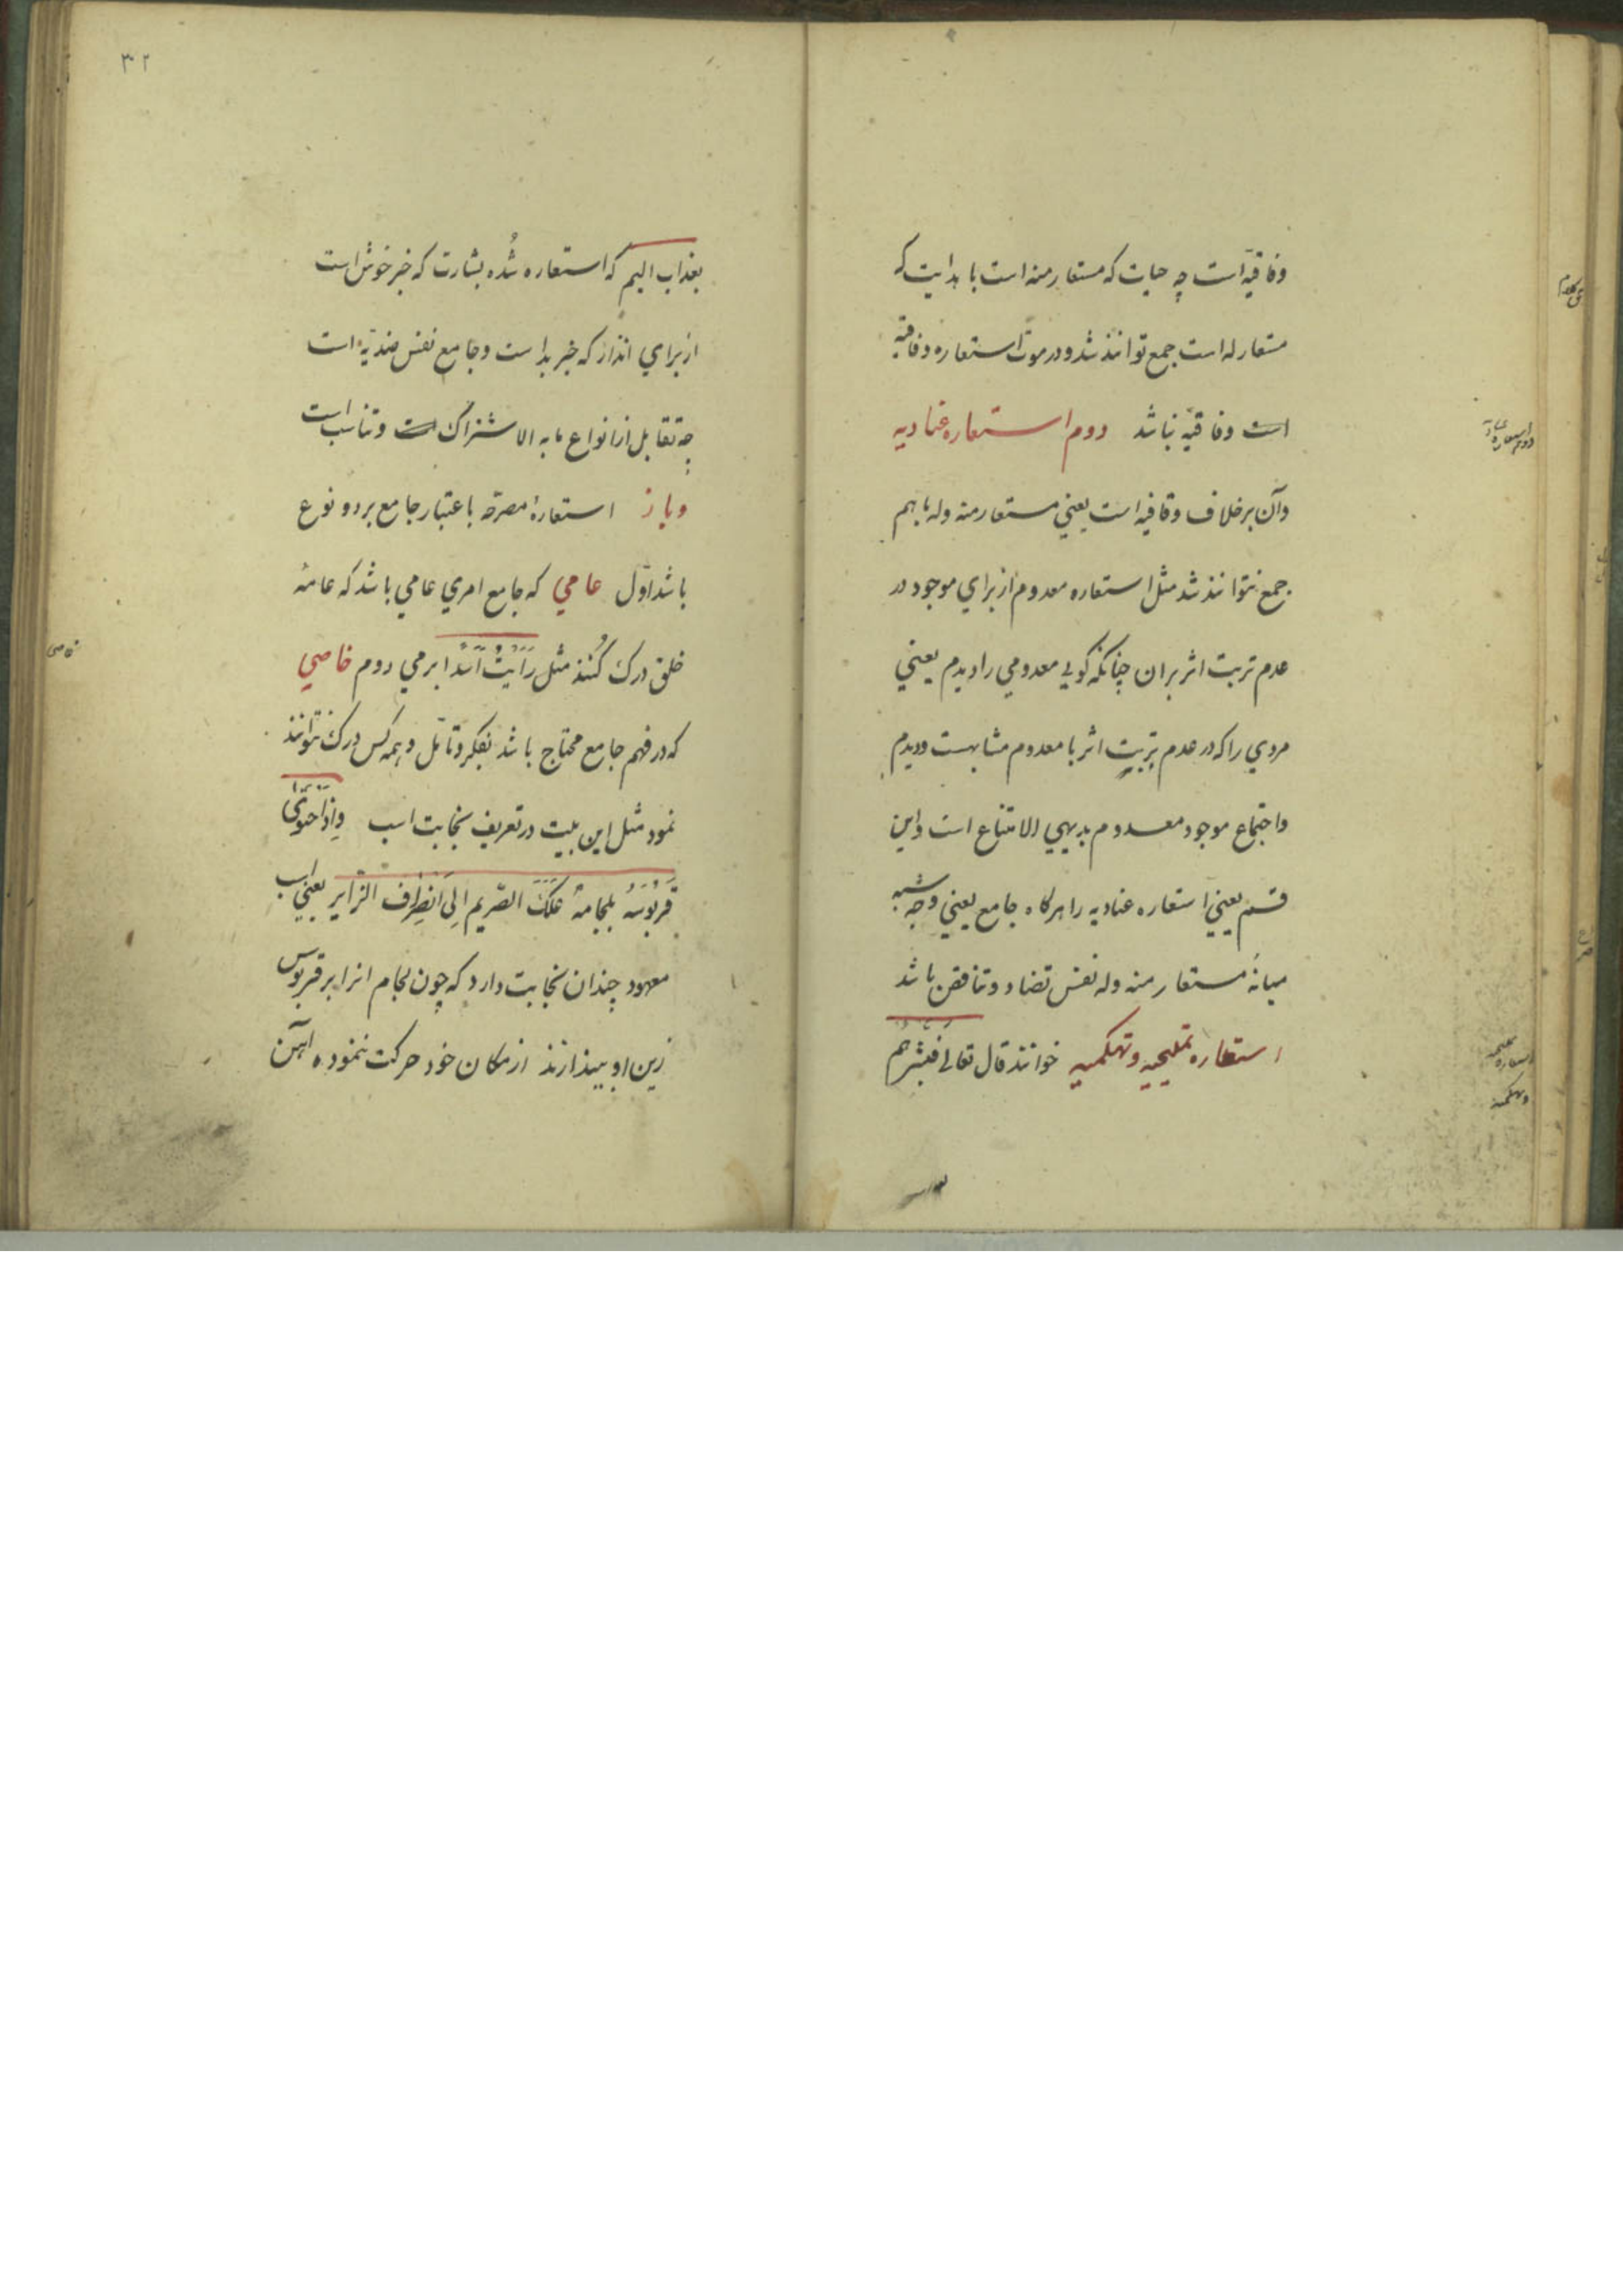 وفاقیه است چه حیات که مستعار منه است با هدایت که
مستعار له است جمع توانند شد و در موت استعاره وفاقیه
است وفاقیه نباشد دوم استعاره عنادیه
وآن برخلاف وفاقیه است یعني مستعار منه وله باهم
جمع نتوانند شد مثل استعاره معدوم از براي موجود در
عدم تربت اثر بران چنانکه کویی معدومي را دیدم یعني
مردي را که در عدم تربیت اثر با معدوم مشابهست دیدم
واجتماع موجود معدوم بدیهي الامتناع است واین
قسم یعني استعاره عنادیه را هرکاه جامع یعني وجه شبه
میانهٔ مستعار منه وله نفس تضاد وتناقض باشد
استعاره تملیحیه وتهکمیه خوانند قال تعالی فبشرهم
دوم استعاره عنادیه
استعاره تملیحیه
وتهکمیه
بعذاب
۳۲
بعذاب الیم که استعاره شُده بشارت که خبر خوش است
از براي انذار که خبر بد است وجامع نفس ضدیّة است
چه تقابل از انواع ما به الاشتراک است وتناسب است
وباز استعارهٔ مصرحه باعتبار جامع بر دو نوع
باشد اوّل عامي که جامع امري عامي باشد که عامهٔ
خلق درک کُنند مثل رَاَیتُ اَسَدًا یرمي دوم خاصي
که در فهم جامع محتاج باشد بفکر وتامّل وهمه کس درک نتوانند
نمود مثل این بیت در تعریف نجابت اسب وَاِذَا احتَوَی
قَرَبُوسَهُ بلجامهٔ عَلَکَ الصّریم اِلی اَنصِرَاف الزّایر یعني اسب
معهود چندان نجابت دارد که چون لجام انرا بر قربوس
زین او بیندازند از مکان خود حرکت ننموده آهن
خاصی